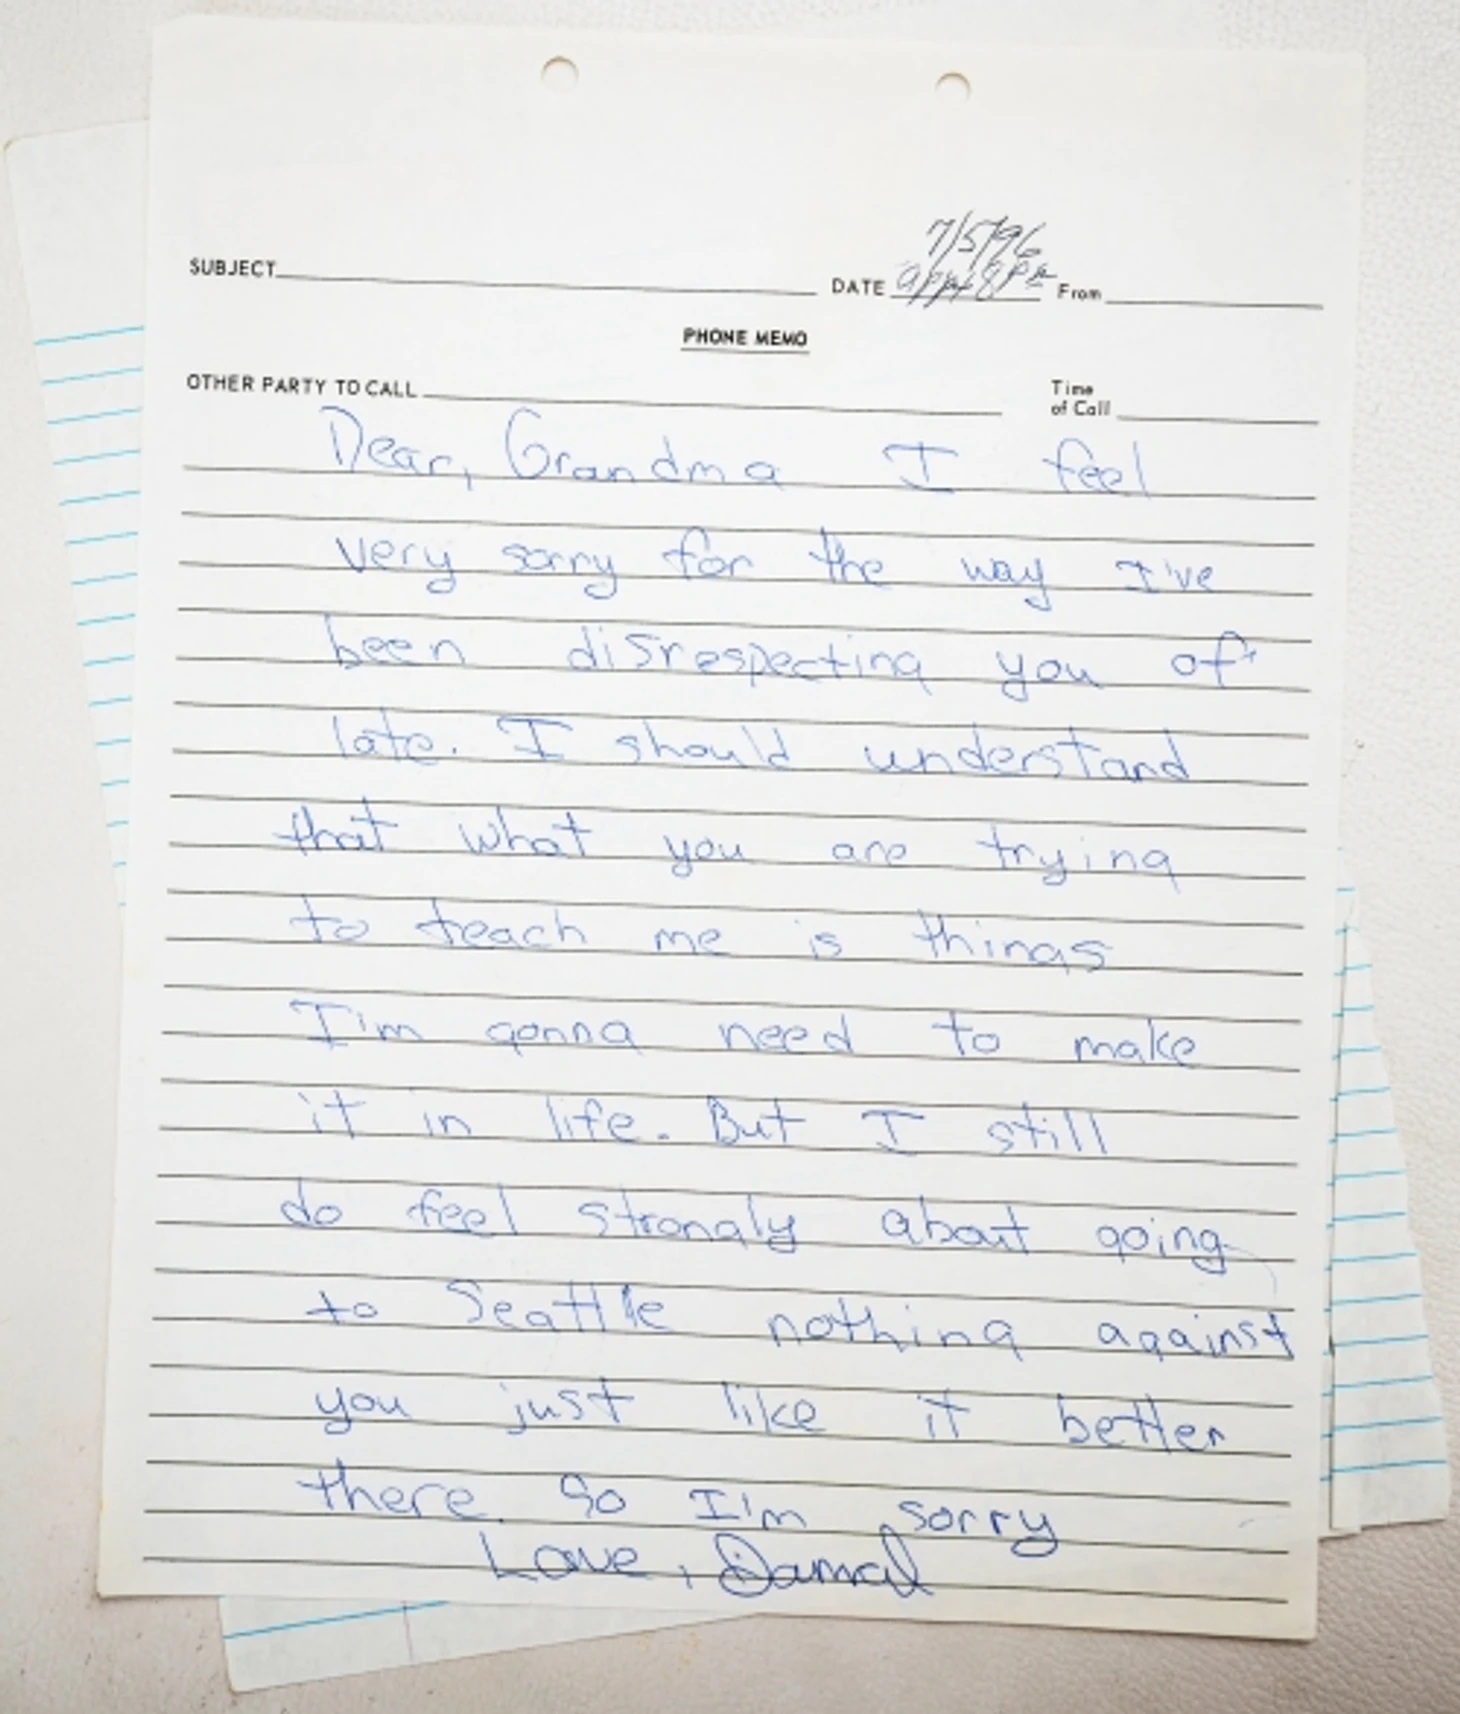 7/5/96
SUBJECT DATE appx 8 PM From
PHONE MEMO
OTHER PARTY TO CALL Time
of Call
Dear, Grandma I feel
very sorry for the way I've
been disrespecting you of
late. I should understand
that what you are trying
to teach me is things
I'm gonna need to make
it in life. But I still
do feel strongly about going
to Seattle nothing against
you just like it better
there. So I'm sorry
Love,